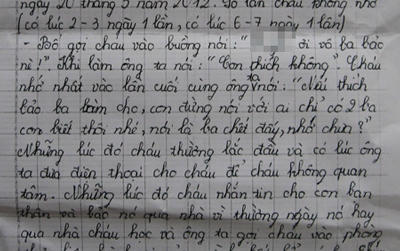 ngày 20 tháng 5 năm 2012. Số lần cháu không nhớ
(có lúc 2-3 ngày 1 lần, có lúc 6-7 ngày 1 lần)
- Bố gọi cháu vào buồng nói: " đi vô ba bảo
nè!". Khi làm ông ta nói: "Con thích không". Cháu
nhớ nhất vào lần cuối cùng ông ta nói: "Nếu thích
bảo ba làm cho, con đừng nói với ai chỉ có 2 ba
con biết thôi nhé, nói là ba chết đấy, nhớ chưa?"
Những lúc đó cháu thường lắc đầu và có lúc ông
ta đưa điện thoại cho cháu để cháu không quan
tâm. Những lúc đó cháu nhắn tin cho con bạn
thân và bảo nó qua nhà vì thường ngày nó hay
qua nhà cháu học và ông ta gọi cháu vào phòng